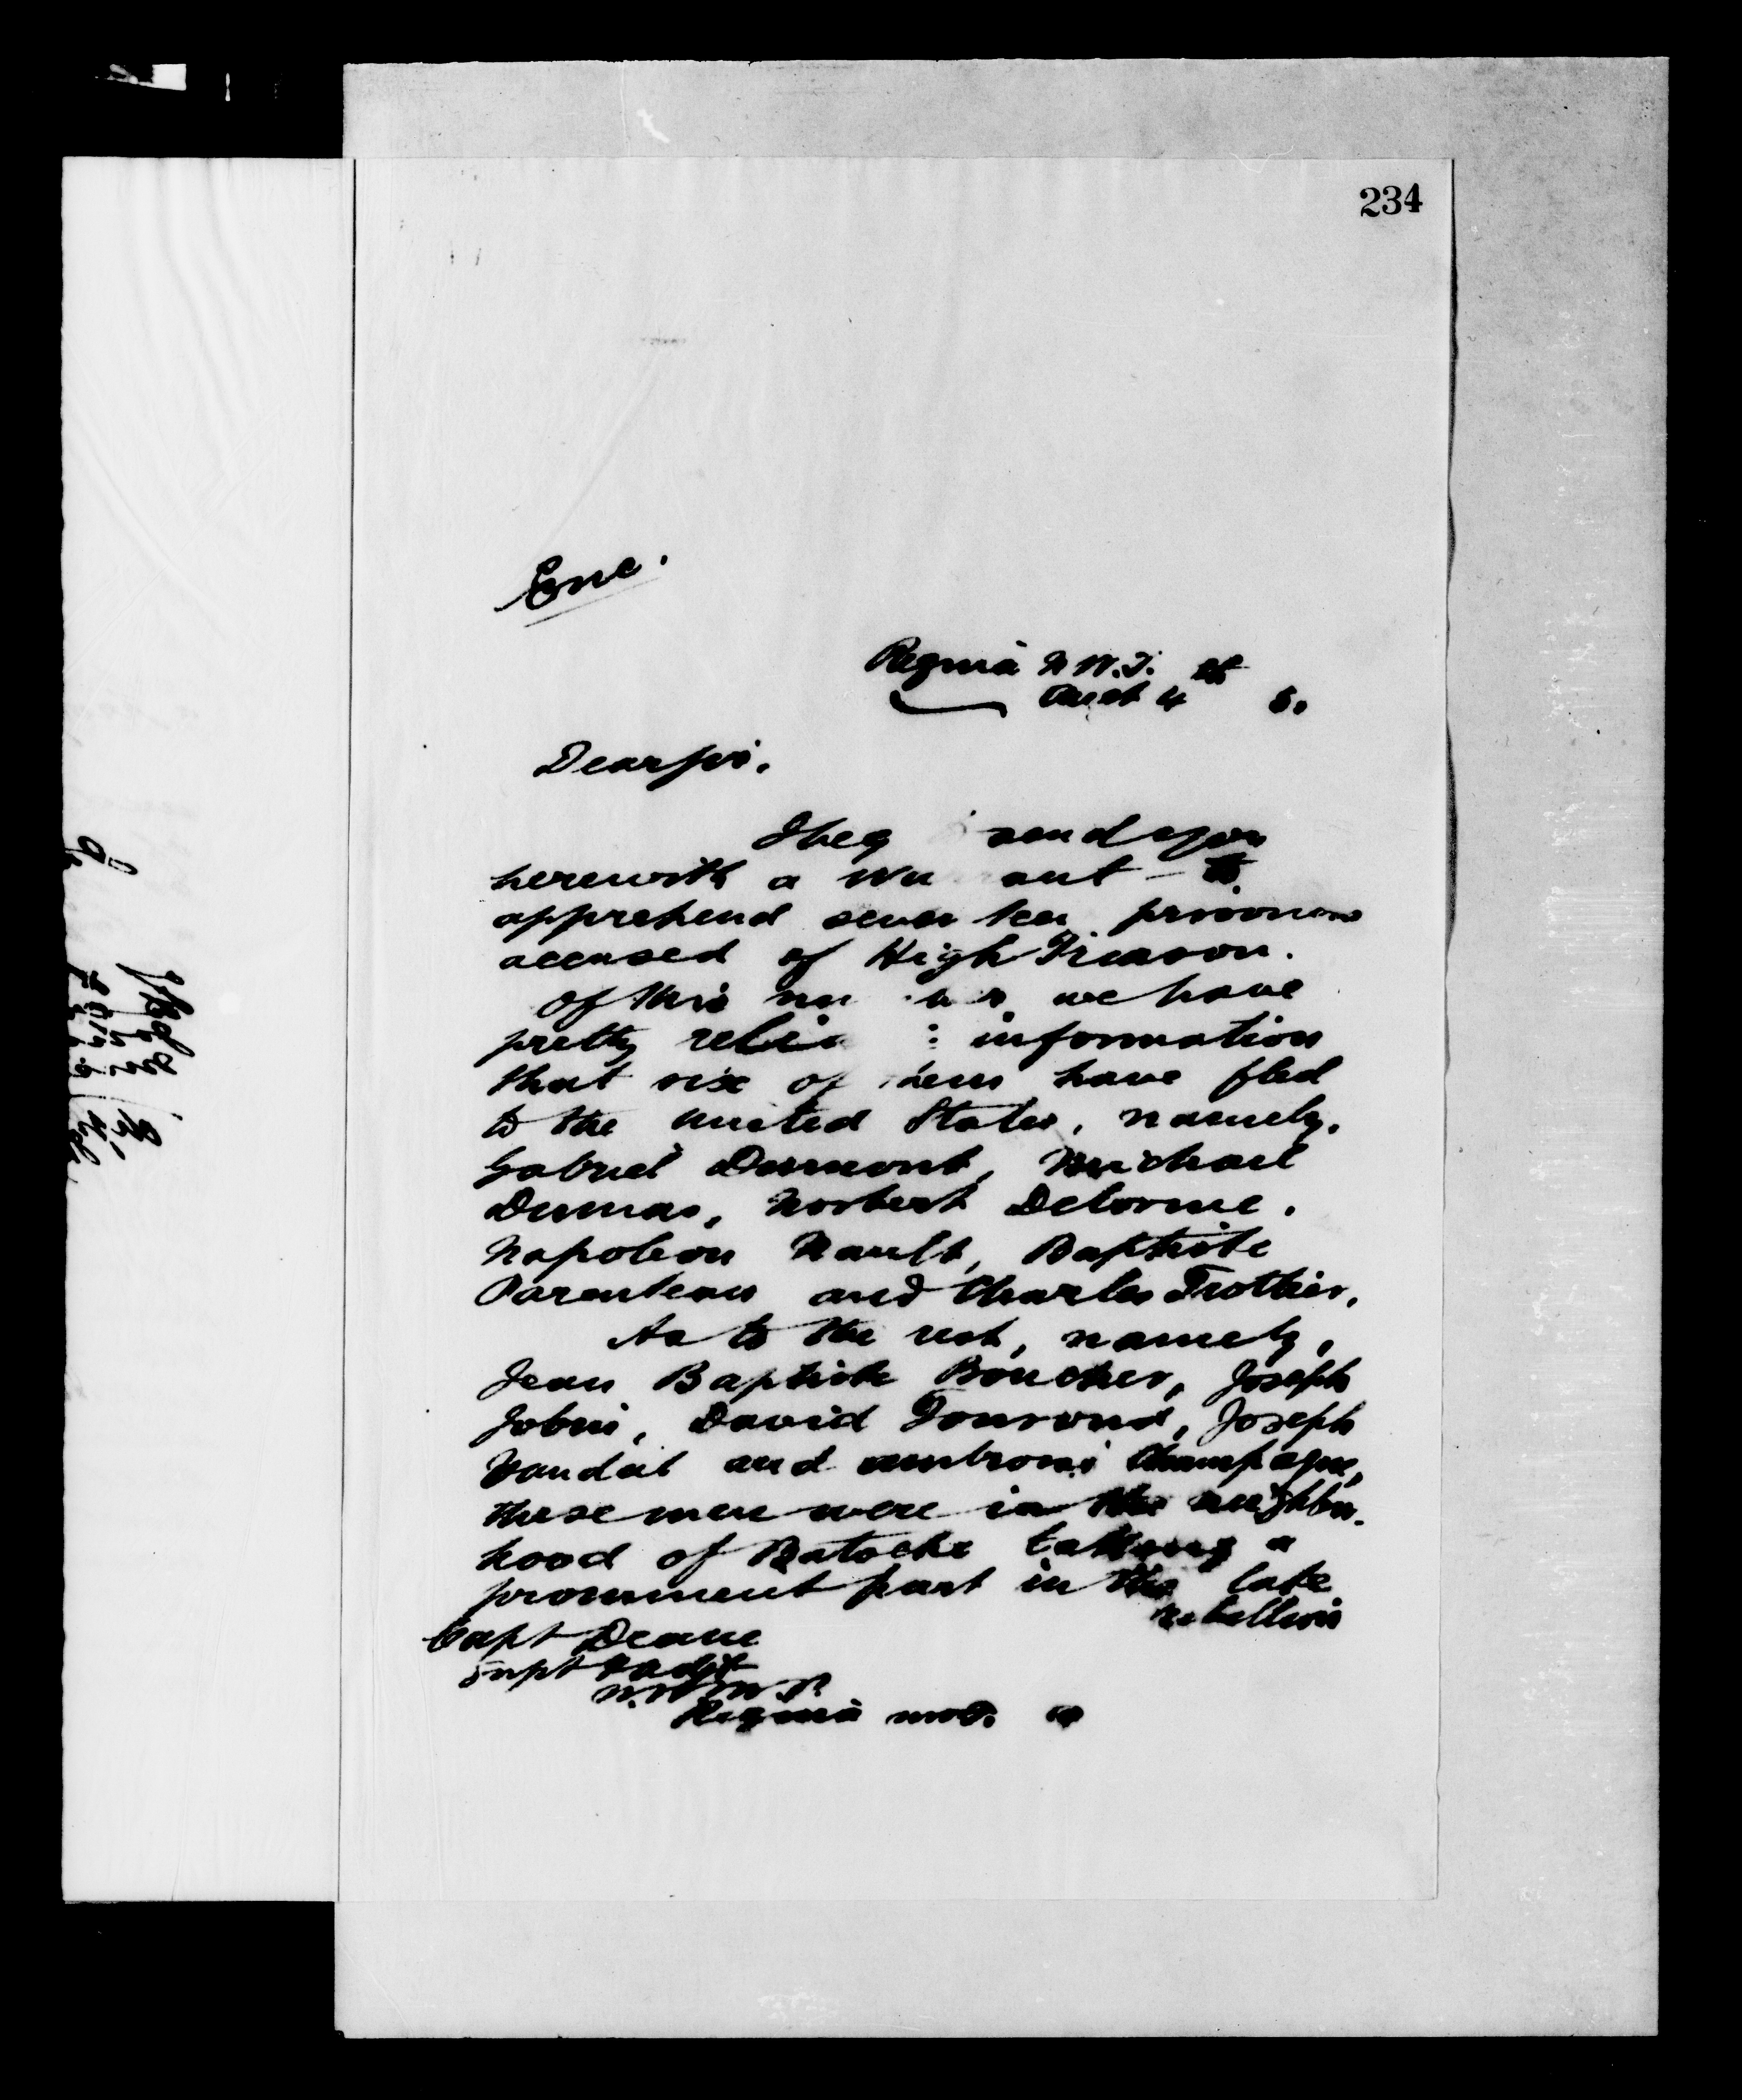 234
Enc.
Regina N.W.T.
4th 5.
Dear Sir.
I beg send you
herewith a to
apprehend seventeen prisoners
accused of High Treason.
Of this we have
pretty information
that six of them have fled
to the United States, namely.
Gabriel Dumont, Michael
Dumas, Norbert Delorme.
Napoleon Nault, Baptiste
Parenteau and Charles Trottier.
As to the rest, namely,
Jean Baptiste Boucher, Joseph
Jobin, David Tourond, Joseph
Vandal and Ambroise Champagne,
these men were in the neighbor-
hood of Batoche taking a
prominent part in the late
rebellion
Capt Deane
Supt & Adjt
N.W.M.P.
Regina